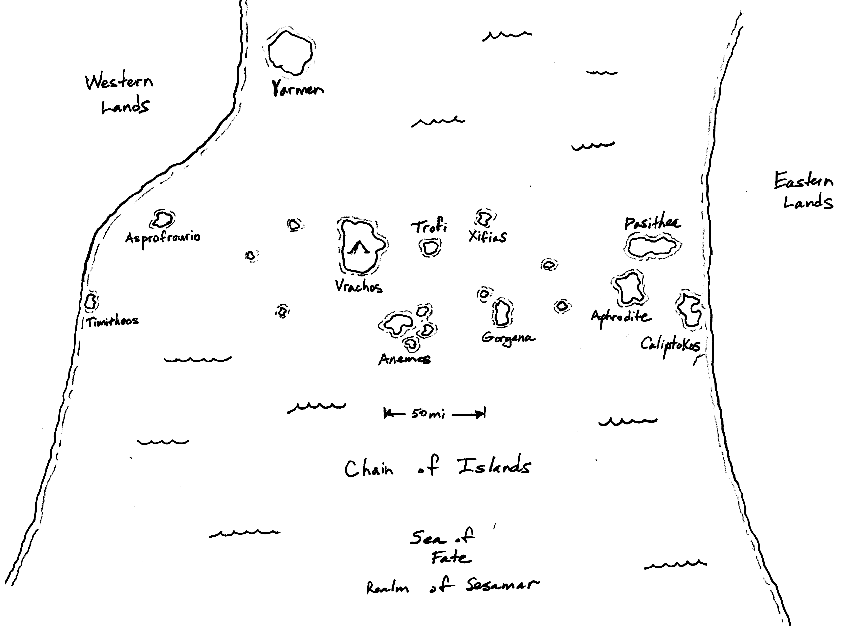 Western
Lands
Yarmen
Eastern
Lands
Asprofrourio
Trofi
Xifias
Pasithea
Vrachos
Timitheos
Anemos
Gorgena
Aphrodite
Caliptokos
50 mi
Chain of Islands
Sea of
Fate
Realm of Sesamar